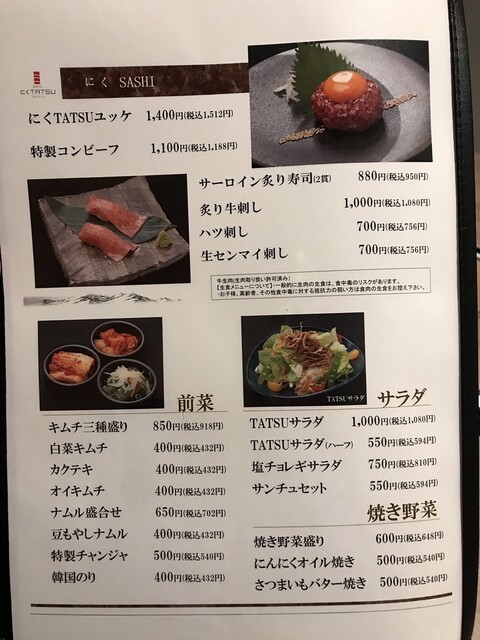 にくTATSU
にく SASHI
にくTATSUユッケ 1,400円(税込1,512円)
特製コンビーフ 1,100円(税込1,188円)
サーロイン炙り寿司(2貫) 880円(税込950円)
炙り牛刺し 1,000円(税込1,080円)
ハツ刺し 700円(税込756円)
生センマイ刺し 700円(税込756円)
牛生肉(生肉取り扱い許可済み)
【生食メニューについて】・一般的に生肉の生食は、食中毒のリスクがあります。
・お子様、高齢者、その他食中毒に対する抵抗力の弱い方は食肉の生食をお控え下さい。
前菜
キムチ三種盛り 850円(税込918円)
白菜キムチ 400円(税込432円)
カクテキ 400円(税込432円)
オイキムチ 400円(税込432円)
ナムル盛合せ 650円(税込702円)
豆もやしナムル 400円(税込432円)
特製チャンジャ 500円(税込540円)
韓国のり 400円(税込432円)
TATSUサラダ
サラダ
TATSUサラダ 1,000円(税込1,080円)
TATSUサラダ(ハーフ) 550円(税込594円)
塩チョレギサラダ 750円(税込810円)
サンチュセット 550円(税込594円)
焼き野菜
焼き野菜盛り 600円(税込648円)
にんにくオイル焼き 500円(税込540円)
さつまいもバター焼き 500円(税込540円)